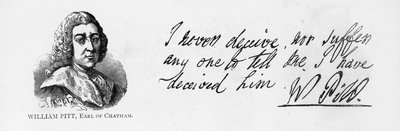 I never deceive, nor suffer
any one to tell me I have
deceived him.
W. Pitt.
WILLIAM PITT, EARL OF CHATHAM.